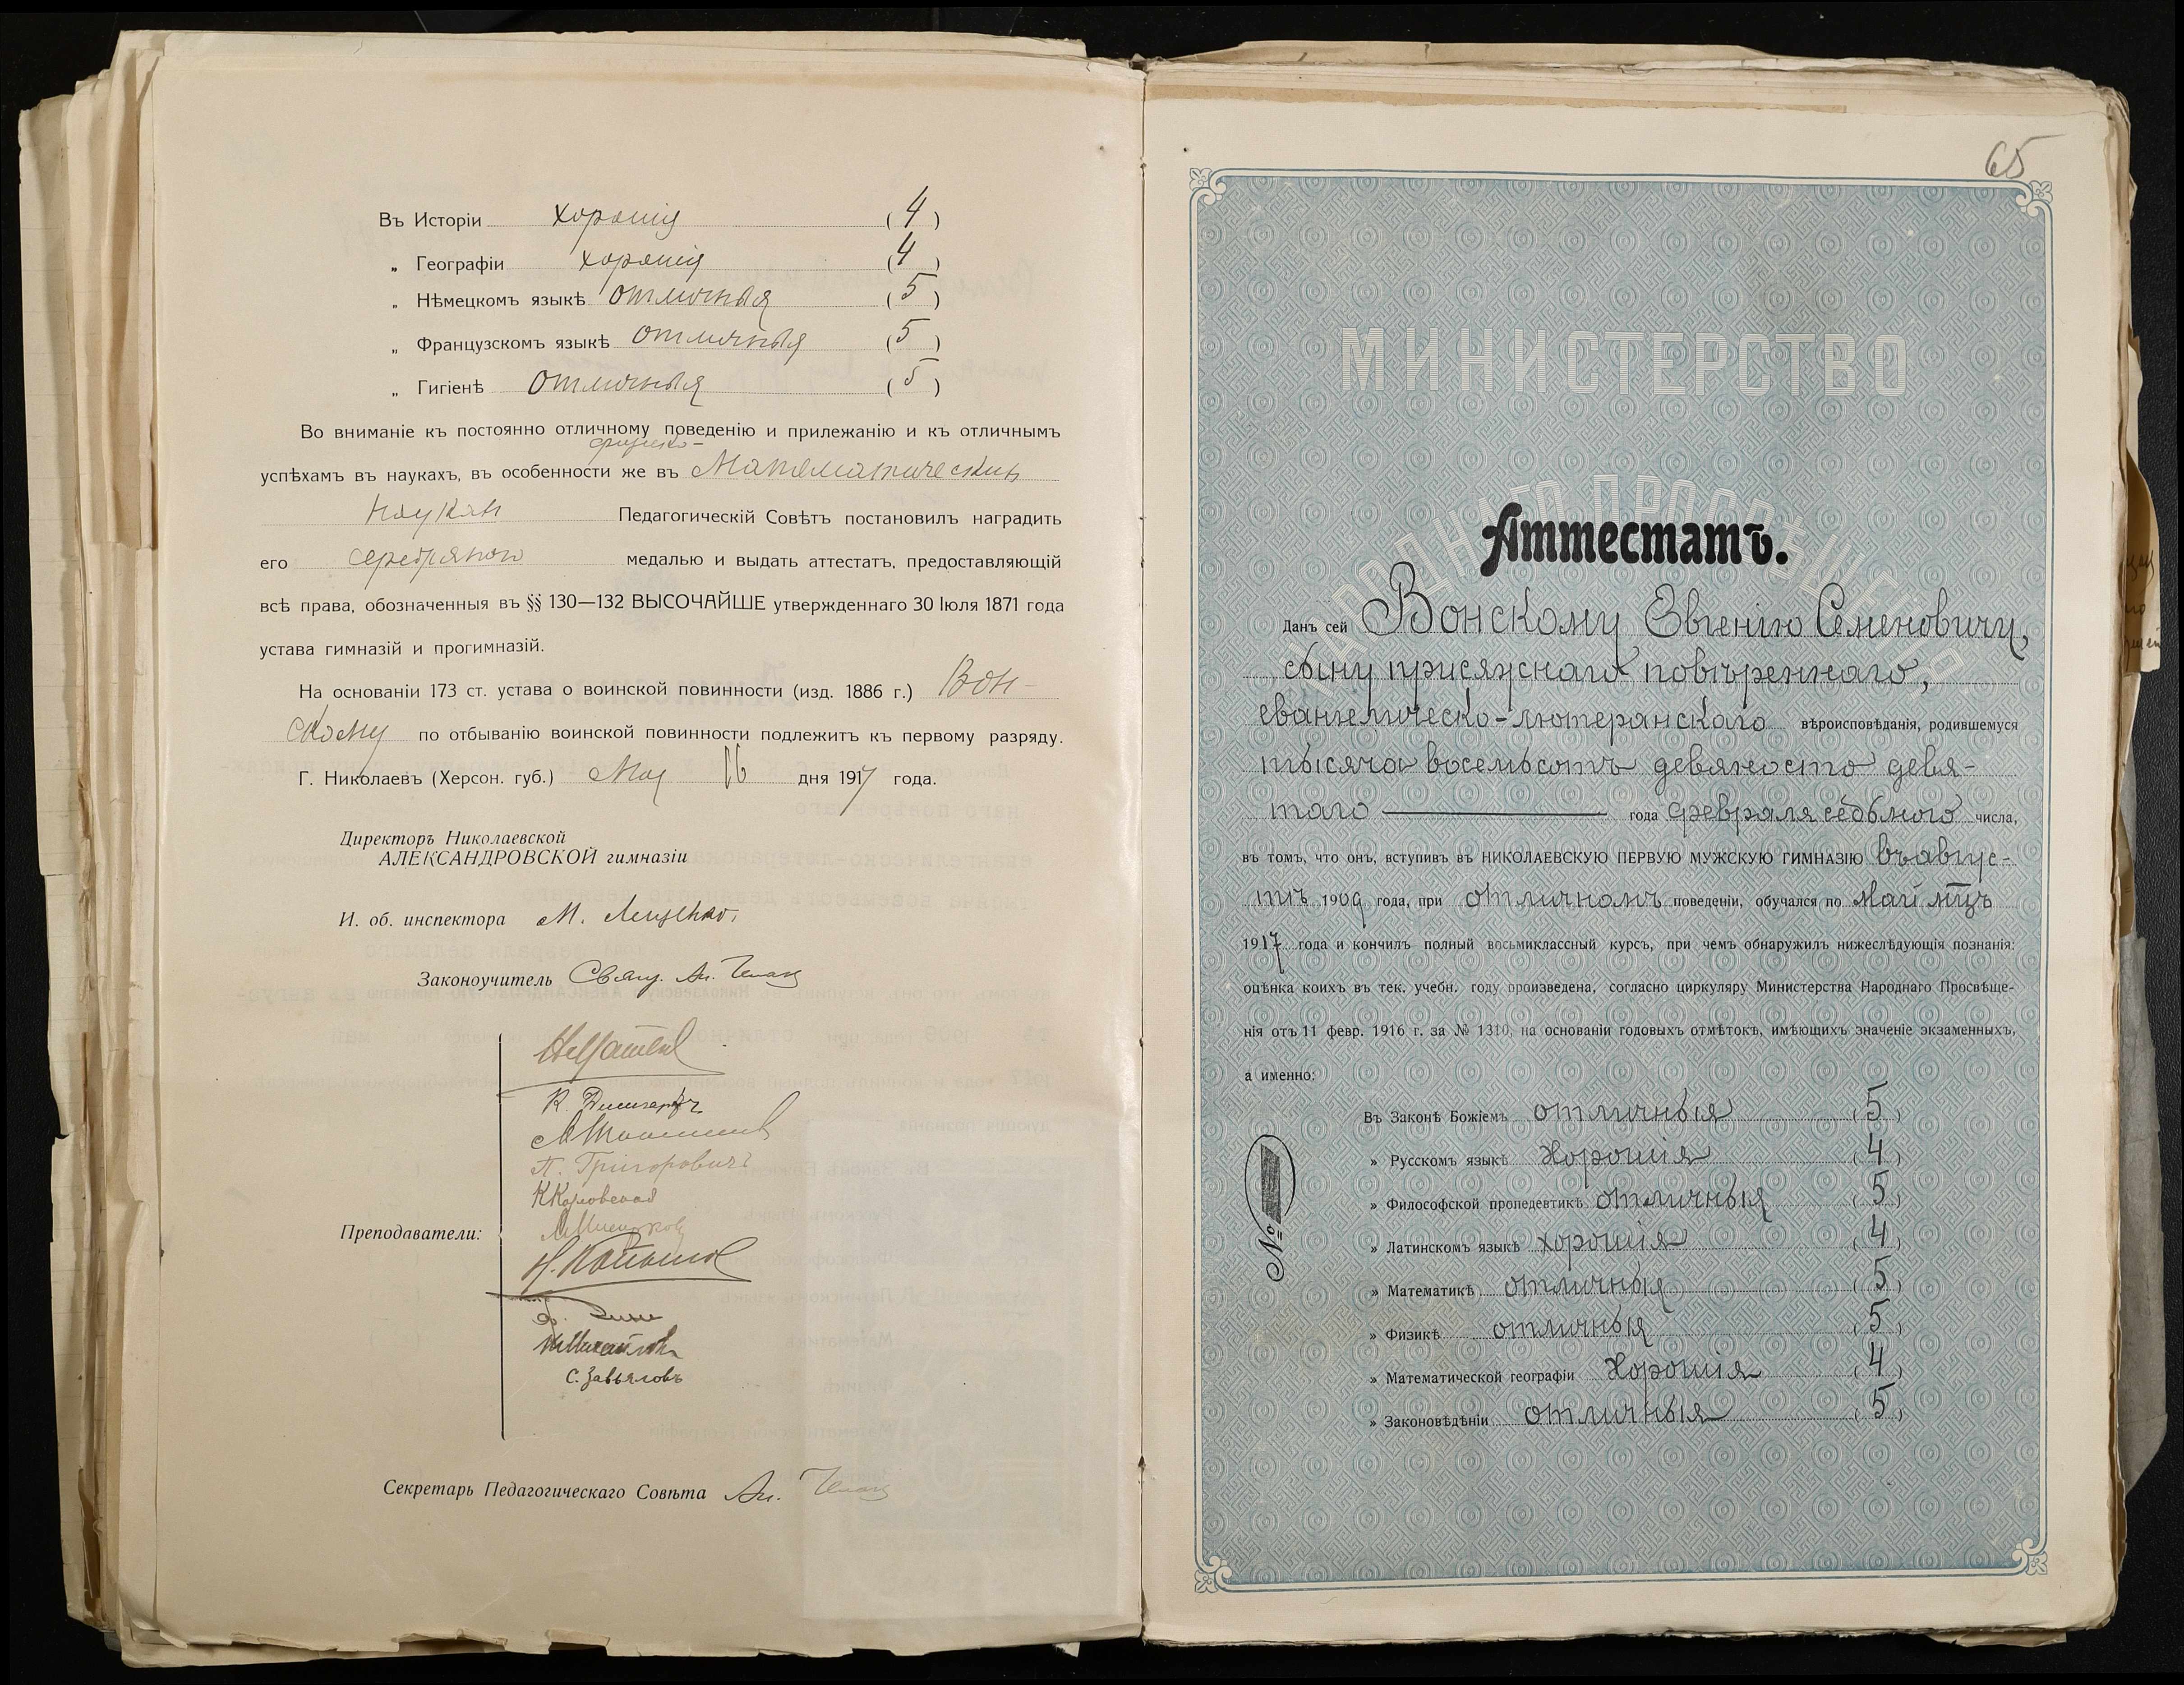 Въ Исторіи хорошія (4)
„ Географіи хорошія (4)
„ Нѣмецкомъ языкѣ отличныя (5)
„ Французскомъ языкѣ отличныя (5)
„ Гигіенѣ отличныя (5)
Во вниманіе къ постоянно отличному поведенію и прилежанію и къ отличнымъ
физико-
успѣхамъ въ наукахъ, въ особенности же въ Математическихъ
наукахъ Педагогическій Совѣтъ постановилъ наградить
его серебряною медалью и выдать аттестатъ, предоставляющій
всѣ права, обозначенныя въ §§ 130—132 ВЫСОЧАЙШЕ утвержденнаго 30 Іюля 1871 года
устава гимназій и прогимназій.
На основаніи 173 ст. устава о воинской повинности (изд. 1886 г.) Вон-
скому по отбыванію воинской повинности подлежитъ къ первому разряду.
Г. Николаевъ (Херсон. губ.) Мая 16 дня 1917 года.
Директоръ Николаевской
АЛЕКСАНДРОВСКОЙ гимназіи
И. об. инспектора М. Лещенко.
Законоучитель Свящ. Ал.
Преподаватели:
П. Григоровичъ
С. Завьяловъ
Секретарь Педагогическаго Совѣта Ал.
65
МИНИСТЕРСТВО
НАРОДНАГО ПРОСВѢЩЕНІЯ
Аттестатъ.
Данъ сей Вонскому Евгенію Семеновичу,
сыну присяжнаго повѣреннаго,
евангелическо-лютеранскаго вѣроисповѣданія, родившемуся
тысяча восемьсотъ девяносто девя-
таго года февраля седьмого числа,
въ томъ, что онъ, вступивъ въ НИКОЛАЕВСКУЮ ПЕРВУЮ МУЖСКУЮ ГИМНАЗІЮ въ авгус-
тѣ 1909 года, при отличномъ поведеніи, обучался по Май мцъ
1917 года и кончилъ полный восьмиклассный курсъ, при чемъ обнаружилъ нижеслѣдующія познанія:
оцѣнка коихъ въ тек. учебн. году произведена, согласно циркуляру Министерства Народнаго Просвѣще-
нія отъ 11 февр. 1916 г. за № 1310, на основаніи годовыхъ отмѣтокъ, имѣющихъ значеніе экзаменныхъ,
а именно:
Въ Законѣ Божіемъ отличныя (5)
» Русскомъ языкѣ Хорошія (4)
» Философской пропедевтикѣ отличныя (5)
» Латинскомъ языкѣ хорошія (4)
» Математикѣ отличныя (5)
» Физикѣ отличныя (5)
» Математической географіи Хорошія (4)
» Законовѣдѣніи отличныя (5)
№